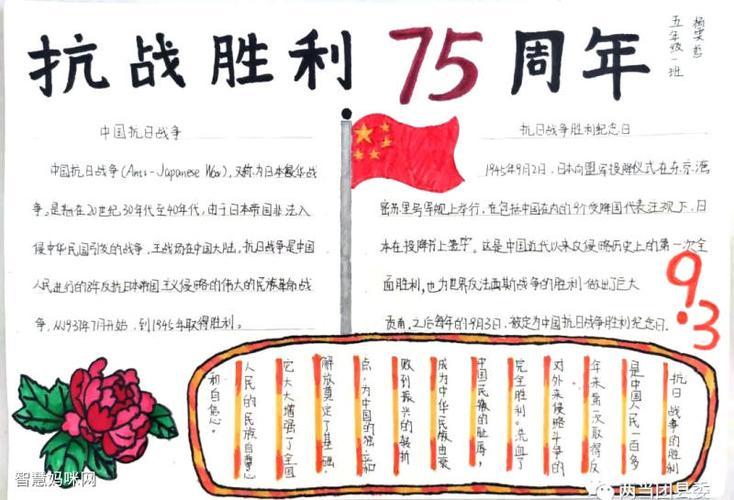 抗战胜利75周年
五年级一班
中国抗日战争
中国抗日战争(Anti-Japanese War),又称为日本侵华战
争。是指在20世纪30年代至40年代,由于日本帝国非法入
侵中华民国引发的战争,主战场在中国大陆。抗日战争是中国
人民进行的8年反抗日本帝国主义侵略的伟大的民族革命战
争,从1937年7月开始,到1945年取得胜利。
抗日战争胜利纪念日
1945年9月2日,日本向盟军投降仪式在东京湾
密苏里号军舰上举行,在包括中国在内的9个受降国代表注视下,日
本在投降书上签字。这是中国近代以来反侵略历史上的第一次全
面胜利,也为世界反法西斯战争的胜利做出了巨大
贡献,之后每年的9月3日,被定为中国抗日战争胜利纪念日.
9.3
抗日战争的胜利
是中国人民一百多
年来第一次取得反
对外来侵略斗争的
完全胜利。洗雪了
中国民族的耻辱,
成为中华民族由衰
败到振兴的转折
点,为中国的独立和
解放奠定了基础,
它大大增强了全国
人民的民族自尊心
和自信心。
智慧妈咪网
两当团县委